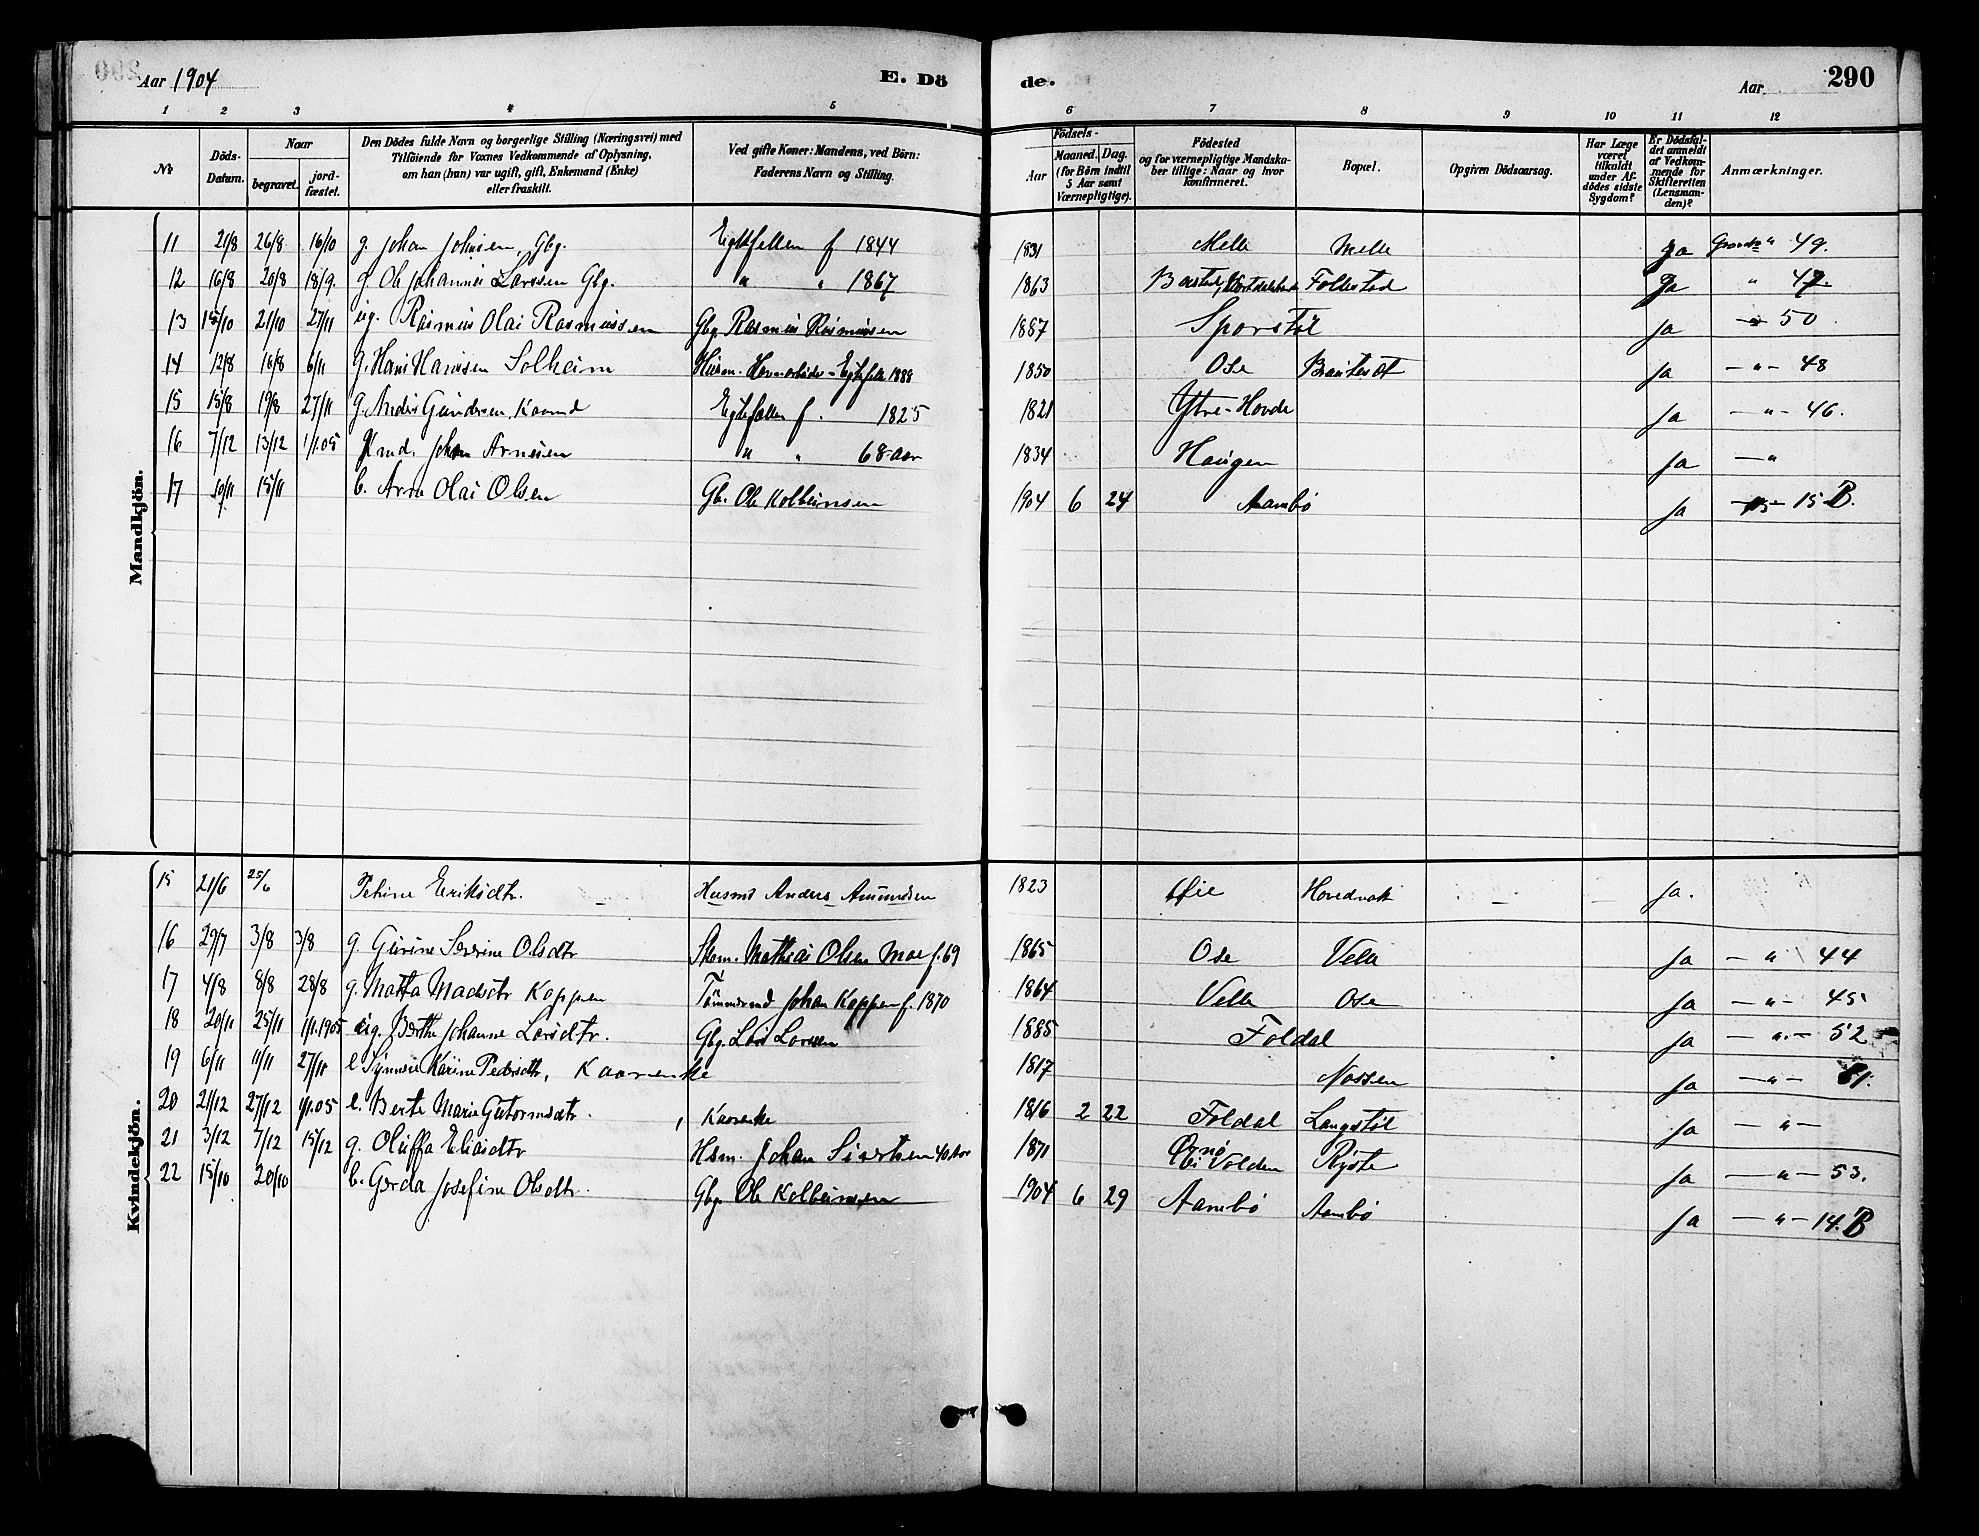 Aar 1904 E. Dö de. Aar 290
1 2 3 4 5 6 7 8 9 10 11 12
No Döds-Datum. Naar begravet. jordfæstet. Den Dödes fulde Navn og borgerlige Stilling (Næringsvei) med Tilföiende for Voxnes Vedkommende af Oplysning, om han (hun) var ugift, gift, Enkemand (Enke) eller fraskilt. Ved gifte Koner: Mandens, ved Börn: Faderens Navn og Stilling. Födsels- Aar Maaned. Dag. (for Börn indtil 5 Aar samt Værnepligtige). Födested og for værnepligtige Mandskaber tillige: Naar og hvor Konfirmeret. Bopæl. Opgiven Dödsaarsag. Har Læge været tilkaldt under Afdödes sidste Sygdom? Er Dödsfaldet anmeldt af Vedkommende for Skifteretten (Lensmanden)? Anmærkninger.
Mandkjön.
11 21/8 26/8 16/10 g. Johan Johnsen, Gbg. Egtefellen f 1844 1831 Melle Melle Ja 49.
12 16/8 20/8 18/9. g. Ole Johannes Larssen Gbg. " " 1867 1863 Follestad Ja " 47.
13 15/10 21/10 27/11 ug. Rasmus Olai Rasmussen Gbg. Rasmus Rasmussen 1887 Sporstøl Ja 50
14 12/8 16/8 6/11 g. Hans Hansen Solheim Husm. Egtefelle 1888 1850 Ose Ja — " — 48
15 15/8 19/8 27/11 g. Anders Gundersen, Kaarmd Egtefællen f. 1825 1821 Ytre-Hovde Ja — " — 46.
16 7/12 13/12 1/1.05 Johan Arnesen " " 68 aar 1834 Haugen Ja — "
17 10/11 15/11 b. Arne Olai Olsen Gb. Ole Kolbeinsen 1904 6 24 Aambø Ja 15 B.
Kvindekjön.
15 21/6 25/6 Petrine Eriksdtr. Husmd Anders Amundsen 1823 Øie Ja.
16 29/7 3/8 3/8 g Gurine Severine Olsdtr Skom. Mathias Olsen Moe f. 69 1865 Ose Velle Ja — " 44
17 4/8 8/8 28/8 g. Matta Madsdtr Koppen Tömmermd Johan Koppen f. 1870 1864 Velle Ose Ja — " — 45
18 20/11 25/11 1/1.1905 ug. Berthe Johanne Larsdtr. Gbg. Lars Larssen 1885 Foldal Ja — " — 52
19 6/11 11/11 27/11 e Synneve Karine Pedersdtr, Kaarenke 1817 Nossen Ja — " — 51.
20 21/12 27/12 1/1.05 e. Berte Marie Gutormsdtr. Kaarenke 1816 2 22 Foldal Langstøl Ja — " —
21 3/12 7/12 15/12 g. Oluffa Eliasdtr Hsm. Johan Sivertsen 40 Aar 1871 Ørnø i Volden Ryste Ja — " — 53.
22 15/10 20/10 b. Gerda Josefine Olsdtr. Gbg Ole Kolbeinsen 1904 6 29 Aambø Aambø Ja — " — 14. B